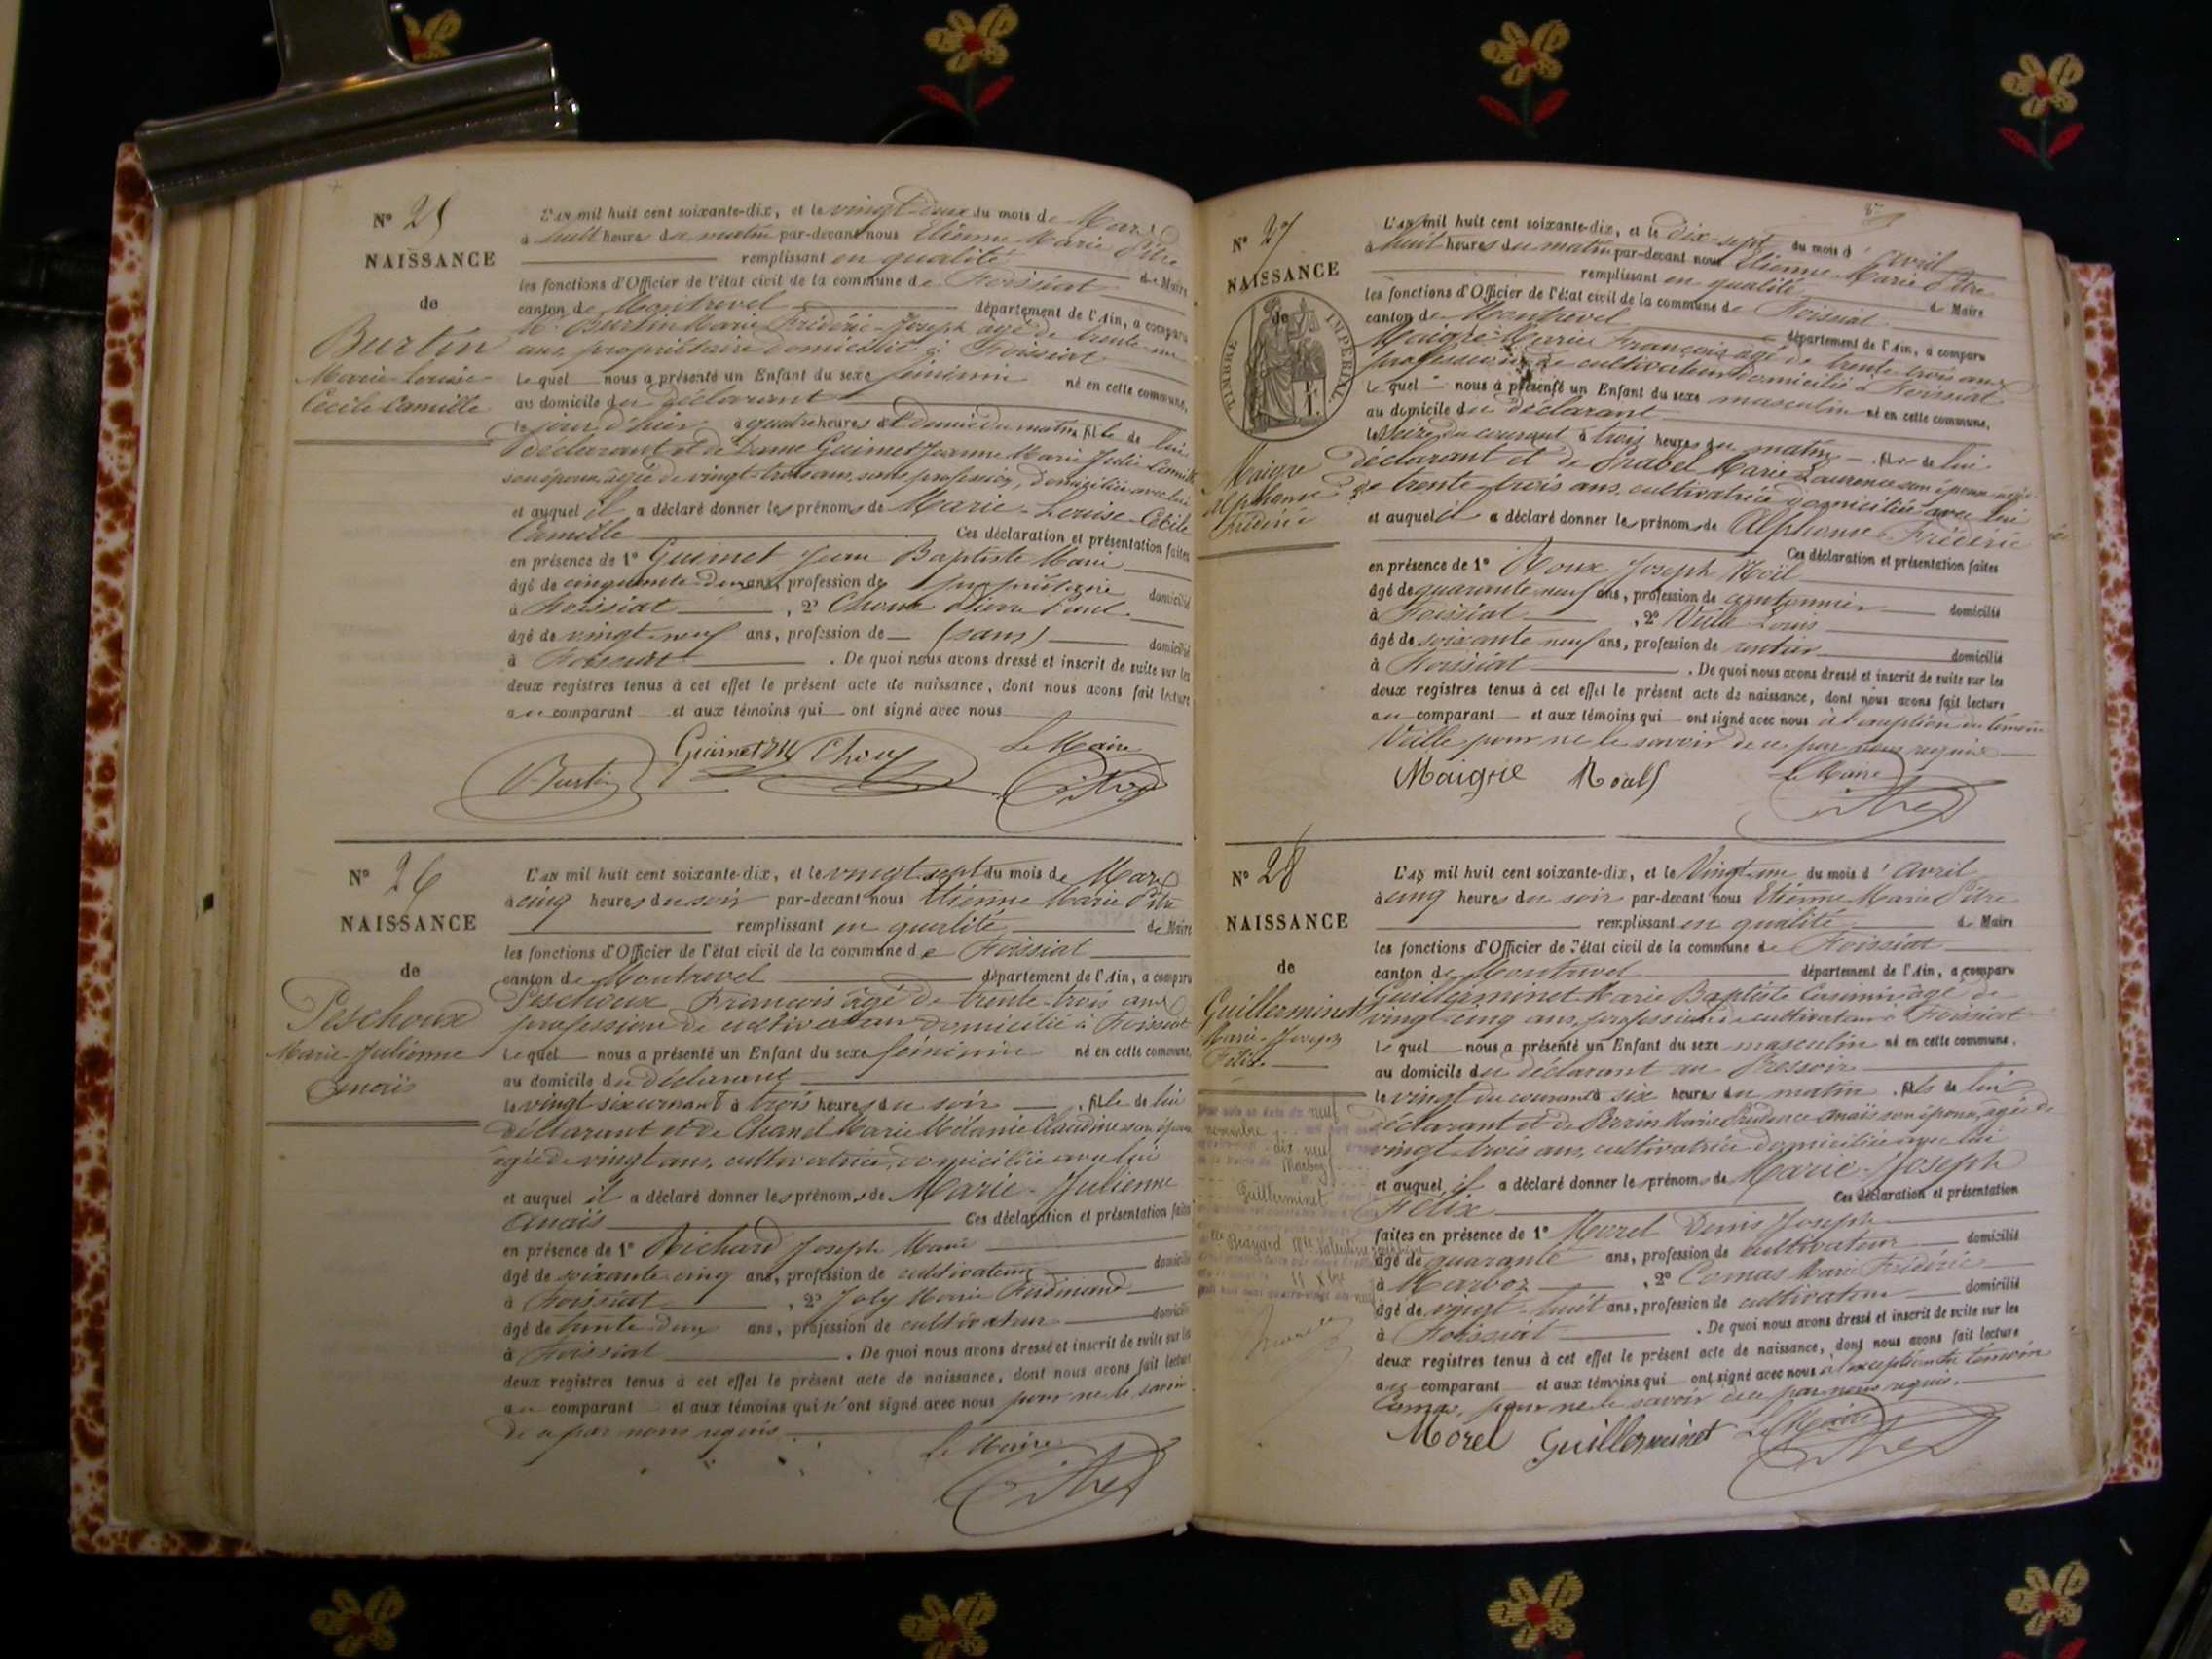 N° 25
NAISSANCE
de
Burtin
Marie-Louise
Cécile Camille
L'AN mil huit cent soixante-dix, et le vingt deux du mois de Mars
à huit heures du matin par-devant nous Etienne Marie Pitre
remplissant en qualité de Maire
les fonctions d'Officier de l'état civil de la commune de Foissiat
canton de Montrevel département de l'Ain, a comparu
M. Burtin Marie Frédéric-Joseph âgé de trente-un
ans, propriétaire domicilié à Foissiat
Lequel nous a présenté un Enfant du sexe féminin né en cette commune,
au domicile du déclarant
le jour d'hier à quatre heures et demie du matin, fille de lui
déclarant et de Dame Guimet Jeanne Marie Julie Camille
son épouse, âgée de vingt-trois ans, sans profession, domiciliée avec lui
et auquel il a déclaré donner les prénoms de Marie-Louise-Cécile
Camille Ces déclaration et présentation faites
en présence de 1° Guimet Jean Baptiste Marie
âgé de cinquante-deux ans, profession de propriétaire domicilié
à Foissiat , 2° Pierre Paul
âgé de vingt-neuf ans, profession de (sans) domicilié
à Foissiat . De quoi nous avons dressé et inscrit de suite sur les
deux registres tenus à cet effet le présent acte de naissance, dont nous avons fait lecture
au comparant et aux témoins qui ont signé avec nous
Le Maire
Burtin Guimet Pitre
N° 26
NAISSANCE
de
Peschoux
Marie-Julienne
Anaïs
L'AN mil huit cent soixante-dix, et le vingt-sept du mois de Mars
à cinq heures du soir par-devant nous Etienne Marie Pitre
remplissant en qualité de Maire
les fonctions d'Officier de l'état civil de la commune de Foissiat
canton de Montrevel département de l'Ain, a comparu
Peschoux François âgé de trente-trois ans
profession de cultivateur domicilié à Foissiat
Lequel nous a présenté un Enfant du sexe féminin né en cette commune,
au domicile du déclarant
le vingt six courant à trois heures du soir , fille de lui
déclarant et de Chanel Marie Mélanie Claudine son épouse
âgée de vingt ans, cultivatrice, domiciliée avec lui
et auquel il a déclaré donner les prénoms de Marie-Julienne
Anaïs Ces déclaration et présentation faites
en présence de 1° Richard Joseph Marie
âgé de soixante-cinq ans, profession de cultivateur domicilié
à Foissiat , 2° Joly Marie Ferdinand
âgé de trente-deux ans, profession de cultivateur domicilié
à Foissiat . De quoi nous avons dressé et inscrit de suite sur les
deux registres tenus à cet effet le présent acte de naissance, dont nous avons fait lecture
au comparant et aux témoins qui n'ont signé avec nous pour ne le savoir
de ce par nous requis
Le Maire
Pitre
N° 27
NAISSANCE
de
TIMBRE IMPERIAL
Maigre
Alphonse
Frédéric
L'AN mil huit cent soixante-dix, et le dix-sept du mois d'avril
à huit heures du matin par-devant nous Etienne Marie Pitre
remplissant en qualité de Maire
les fonctions d'Officier de l'état civil de la commune de Foissiat
canton de Montrevel département de l'Ain, a comparu
Maigre Marie François âgé de trente-trois ans
profession de cultivateur domicilié à Foissiat
Lequel nous a présenté un Enfant du sexe masculin né en cette commune,
au domicile du déclarant
le seize du courant à trois heures du matin , fils de lui
déclarant et de Marie Laurence son épouse âgée
de trente-trois ans, cultivatrice domiciliée avec lui
et auquel il a déclaré donner les prénoms de Alphonse-Frédéric
Ces déclaration et présentation faites
en présence de 1° Roux Joseph Noël
âgé de quarante-neuf ans, profession de cantonnier domicilié
à Foissiat , 2° Veille Louis
âgé de soixante-neuf ans, profession de rentier domicilié
à Foissiat . De quoi nous avons dressé et inscrit de suite sur les
deux registres tenus à cet effet le présent acte de naissance, dont nous avons fait lecture
au comparant et aux témoins qui ont signé avec nous à l'exception du témoin
Veille pour ne le savoir de ce par nous requis
Le Maire
Maigre Pitre
N° 28
NAISSANCE
de
Guillerminet
Marie-Joseph
Félix
L'AN mil huit cent soixante-dix, et le Vingt-un du mois d'avril
à cinq heures du soir par-devant nous Etienne Marie Pitre
remplissant en qualité de Maire
les fonctions d'Officier de l'état civil de la commune de Foissiat
canton de Montrevel département de l'Ain, a comparu
Guillerminet Marie Baptiste Casimir âgé de
vingt-cinq ans, profession de cultivateur à Foissiat
Lequel nous a présenté un Enfant du sexe masculin né en cette commune,
au domicile du déclarant au Pressoir
le vingt du courant à six heures du matin , fils de lui
déclarant et de Perrin Marie Prudence Anaïs son épouse, âgée de
vingt-trois ans, cultivatrice domiciliée avec lui
et auquel il a déclaré donner les prénoms de Marie-Joseph
Félix Ces déclaration et présentation
faites en présence de 1° Morel Denis Joseph
âgé de quarante ans, profession de cultivateur domicilié
à Marboz , 2° Comas Marie Frédéric
âgé de vingt-huit ans, profession de cultivateur domicilié
à Foissiat . De quoi nous avons dressé et inscrit de suite sur les
deux registres tenus à cet effet le présent acte de naissance, dont nous avons fait lecture
au comparant et aux témoins qui ont signé avec nous à l'exception du témoin
Comas, pour ne le savoir de ce par nous requis.
Le Maire
Morel Guillerminet Pitre
neuf
novembre
dix neuf
Marboz
Guillerminet